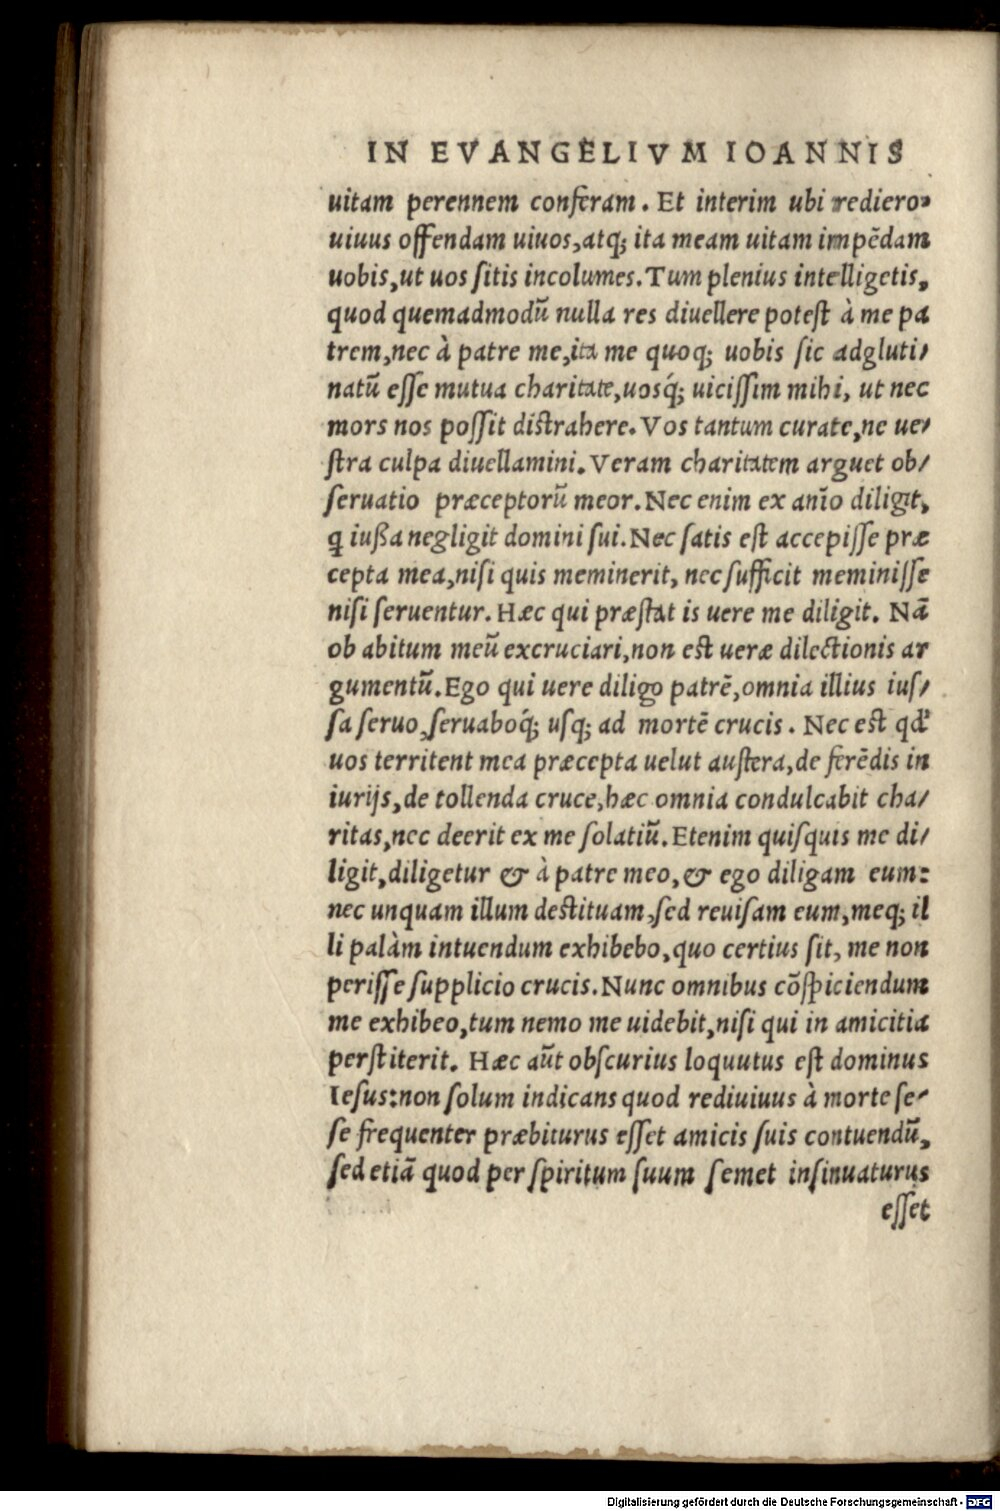 IN EVANGELIVM IOANNIS
uitam perennem conferam. Et interim ubi rediero,
uiuus offendam uiuos, atq; ita meam uitam impēdam
uobis, ut uos sitis incolumes. Tum plenius intelligetis,
quod quemadmodū nulla res diuellere potest à me pa
trem, nec à patre me, ita me quoq; uobis sic adgluti/
natū esse mutua charitate, uosq́; uicissim mihi, ut nec
mors nos possit distrahere. Vos tantum curate, ne ue/
stra culpa diuellamini. Veram charitatem arguet ob/
seruatio præceptorū meor. Nec enim ex anīo diligit,
q iußa negligit domini sui. Nec satis est accepisse præ
cepta mea, nisi quis meminerit, nec sufficit meminisse
nisi seruentur. Hæc qui præstat is uere me diligit. Nā
ob abitum meū excruciari, non est ueræ dilectionis ar
gumentū. Ego qui uere diligo patrē, omnia illius ius/
sa seruo, seruaboq́; usq; ad mortē crucis. Nec est qd'
uos territent mea præcepta uelut austera, de ferēdis in
iurijs, de tollenda cruce, hæc omnia condulcabit cha/
ritas, nec deerit ex me solatiū. Etenim quisquis me di/
ligit, diligetur & à patre meo, & ego diligam eum:
nec unquam illum destituam, sed reuisam eum, meq; il
li palàm intuendum exhibebo, quo certius sit, me non
perisse supplicio crucis. Nunc omnibus cōspiciendum
me exhibeo, tum nemo me uidebit, nisi qui in amicitia
perstiterit. Hæc aūt obscurius loquutus est dominus
Iesus: non solum indicans quod rediuiuus à morte se/
se frequenter præbiturus esset amicis suis contuendū,
sed etiā quod per spiritum suum semet insinuaturus
esset
Digitalisierung gefördert durch die Deutsche Forschungsgemeinschaft - DFG